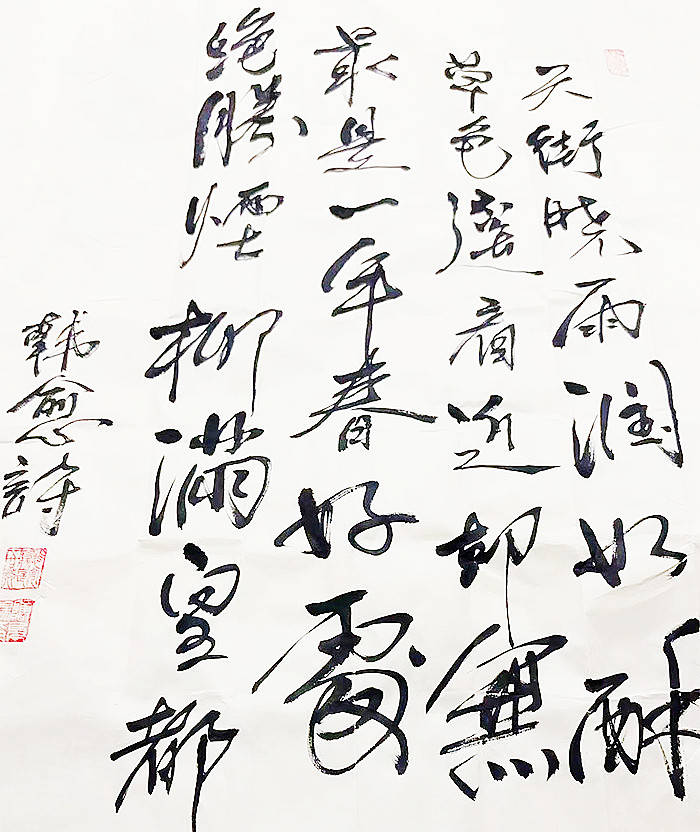 天街晓雨润如酥
草色遥看近却無
最是一年春好處
绝勝煙柳滿皇都
韓愈詩